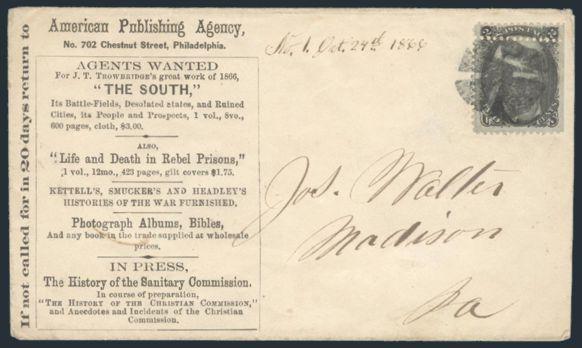 If not called for in 20 days return to
American Publishing Agency,
No. 702 Chestnut Street, Philadelphia.
AGENTS WANTED
For J. T. Trowbridge's great work of 1866,
"THE SOUTH,"
Its Battle-Fields, Desolated states, and Ruined
Cities, its People and Prospects, 1 vol., 8vo.,
600 pages, cloth, $3.00.
ALSO,
"Life and Death in Rebel Prisons,"
1 vol., 12mo., 423 pages, gilt covers $1.75.
KETTELL'S, SMUCKER'S AND HEADLEY'S
HISTORIES OF THE WAR FURNISHED.
Photograph Albums, Bibles,
And any book in the trade supplied at wholesale
prices.
IN PRESS,
The History of the Sanitary Commission.
In course of preparation,
"The History of the Christian Commission,"
and Anecdotes and Incidents of the Christian
Commission.
No. 1. Oct. 24th 1866
Jos. Walter
Madison